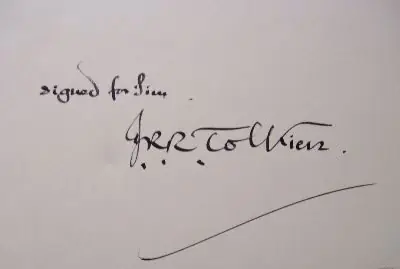 signed for
JRR Tolkien.